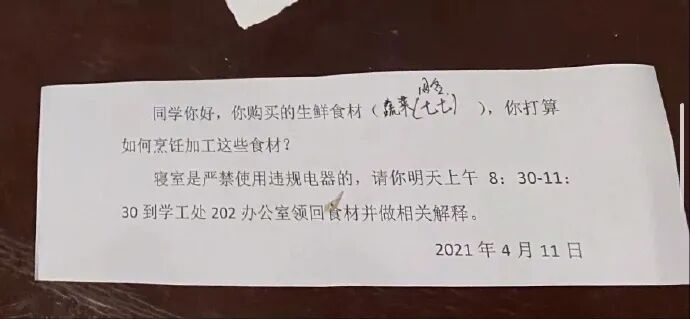 同学你好，你购买的生鲜食材（蔬菜(七七)），你打算
如何烹饪加工这些食材？
寝室是严禁使用违规电器的，请你明天上午 8：30-11：
30 到学工处 202 办公室领回食材并做相关解释。
2021 年 4 月 11 日